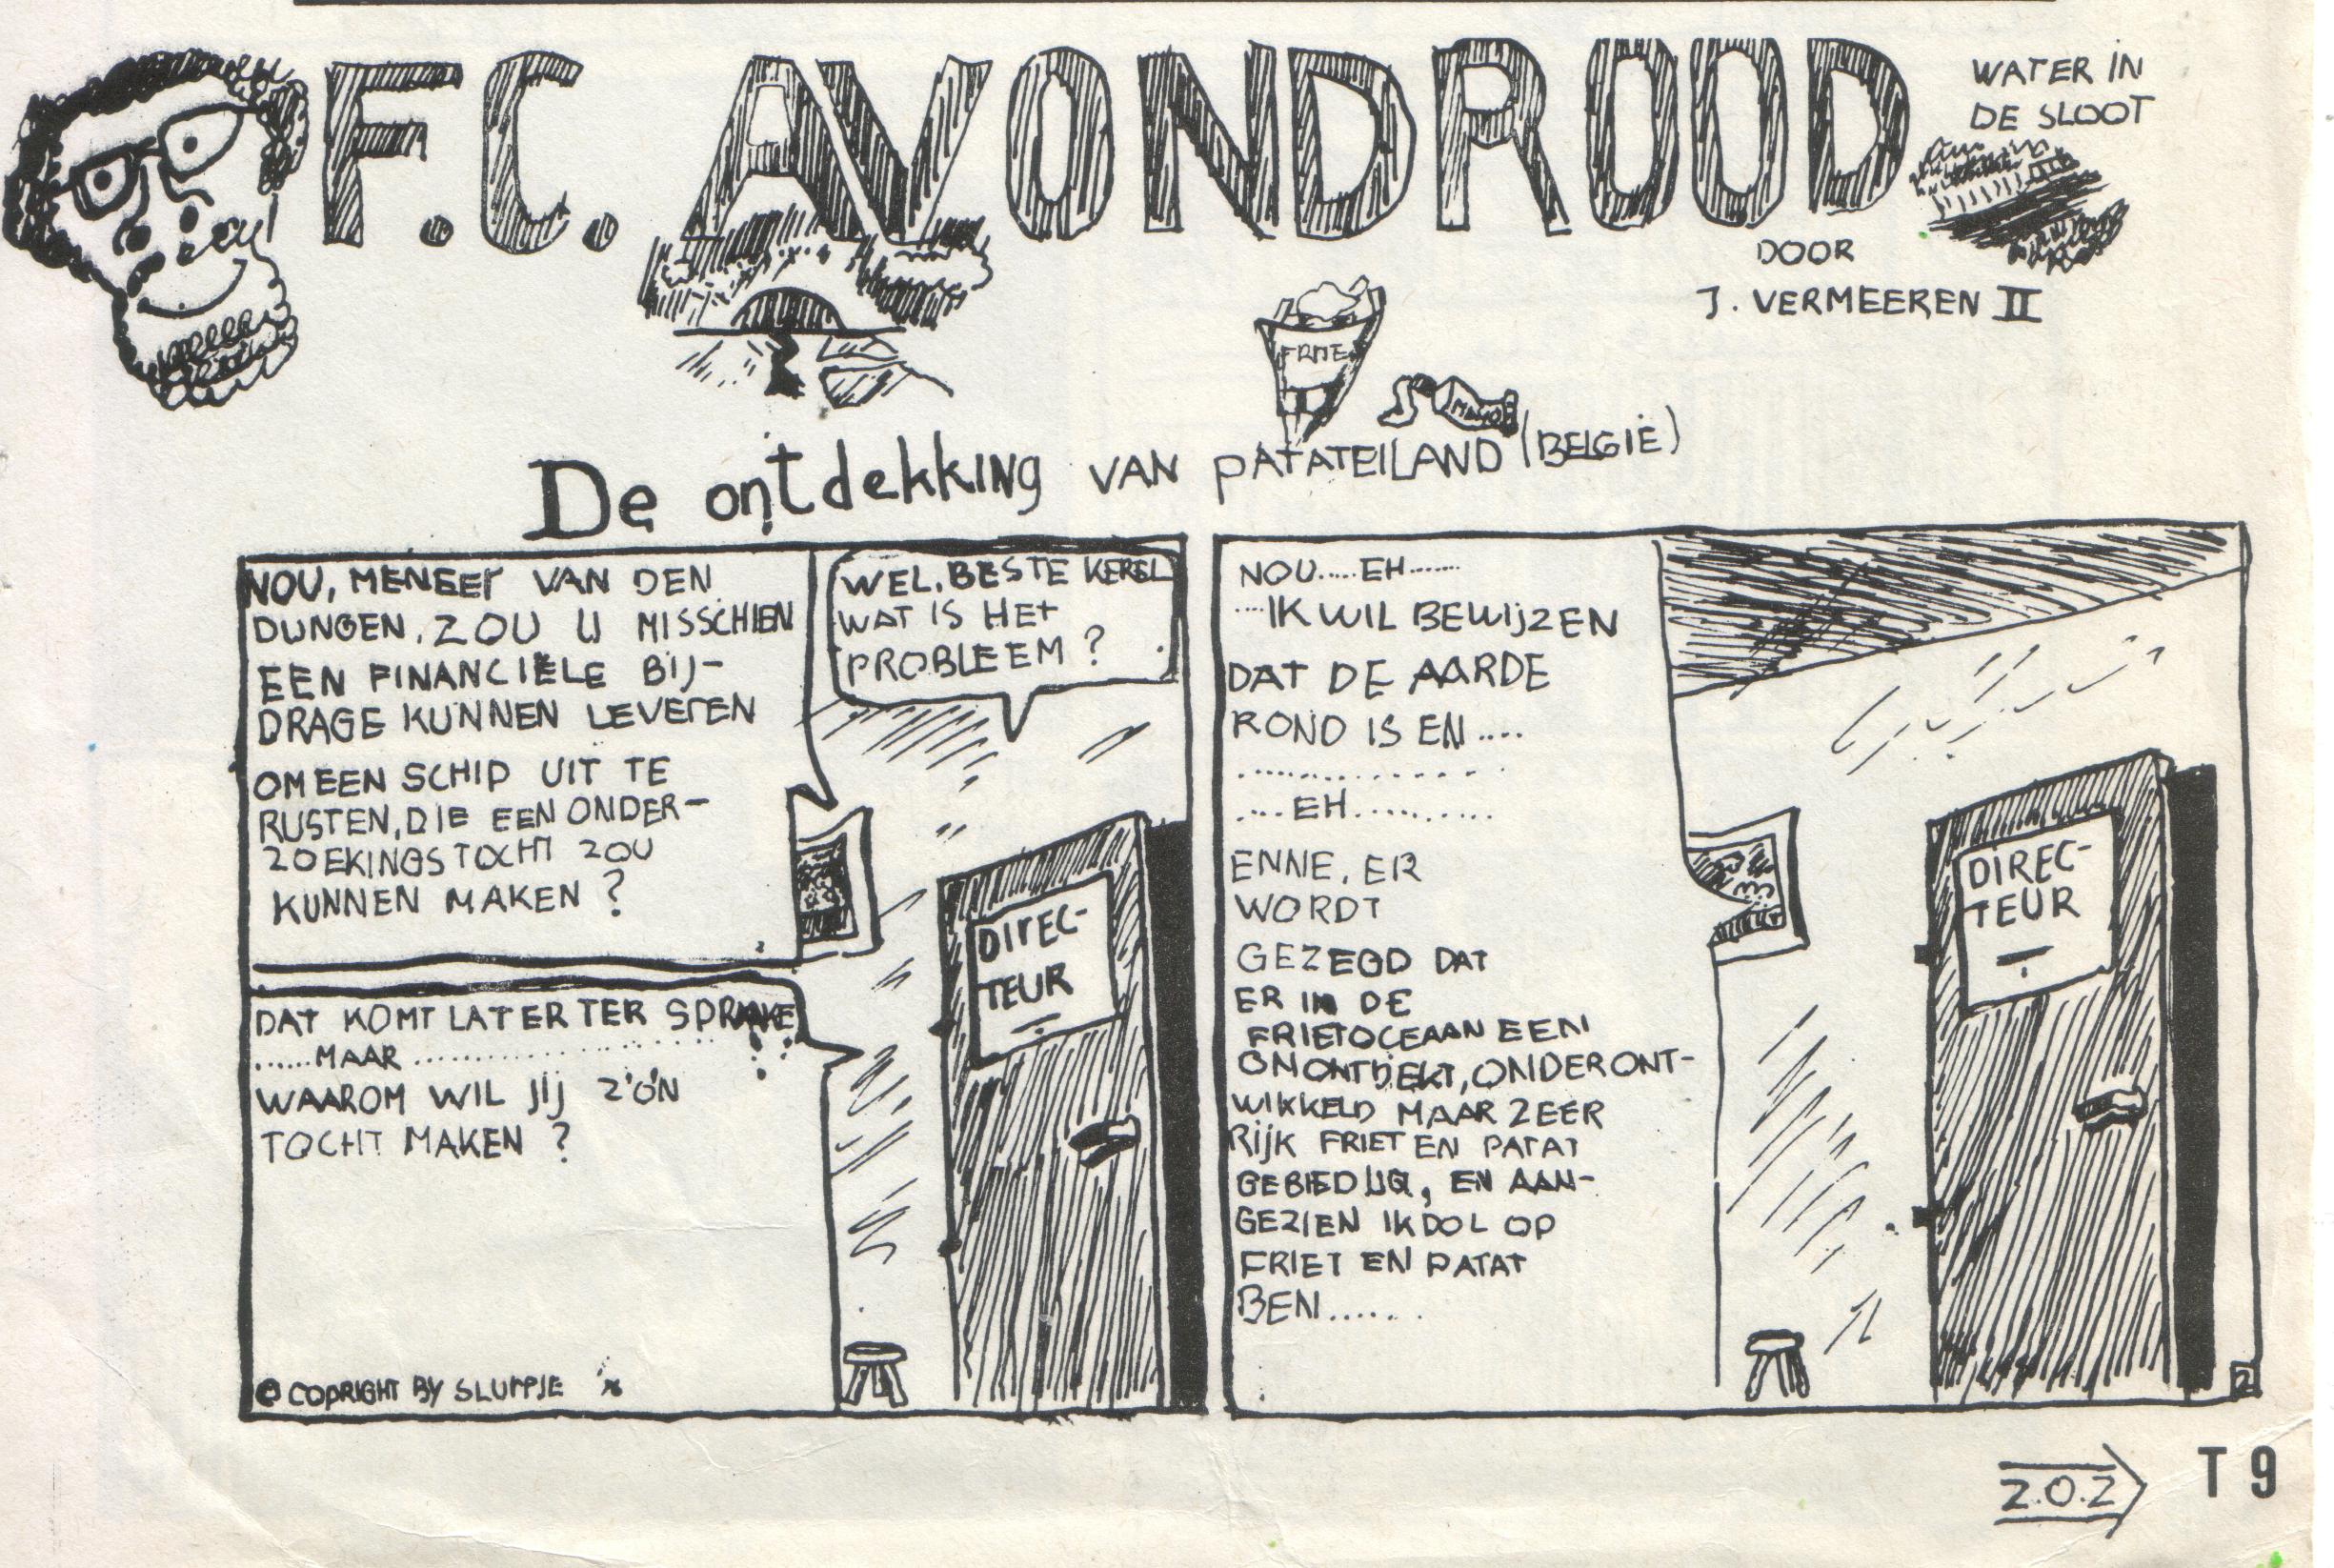 F.C. AVONDROOD
WATER IN
DE SLOOT
DOOR
J. VERMEEREN II
FRITE
MAYO
De ontdekking VAN PATATEILAND (BELGIË)
NOU, MENEER VAN DEN
DUNGEN, ZOU U MISSCHIEN
EEN FINANCIËLE BIJ-
DRAGE KUNNEN LEVEREN
OM EEN SCHIP UIT TE
RUSTEN, DIE EEN ONDER-
ZOEKINGSTOCHT ZOU
KUNNEN MAKEN ?
WEL, BESTE KEREL
WAT IS HET
PROBLEEM ?
DIREC-
TEUR
DAT KOMT LATER TER SPRAKE
......MAAR ......................
WAAROM WIL JIJ ZO'N
TOCHT MAKEN ?
© COPRIGHT BY SLURPJE
NOU.....EH.......
....IK WIL BEWIJZEN
DAT DE AARDE
ROND IS EN ....
..................
....EH..........
ENNE, ER
WORDT
GEZEGD DAT
ER IN DE
FRIETOCEAAN EEN
ONONTDEKT, ONDERONT-
WIKKELD MAAR ZEER
RIJK FRIET EN PATAT
GEBIED LIGT, EN AAN-
GEZIEN IK DOL OP
FRIET EN PATAT
BEN......
DIREC-
TEUR
2
Z.O.Z
T 9